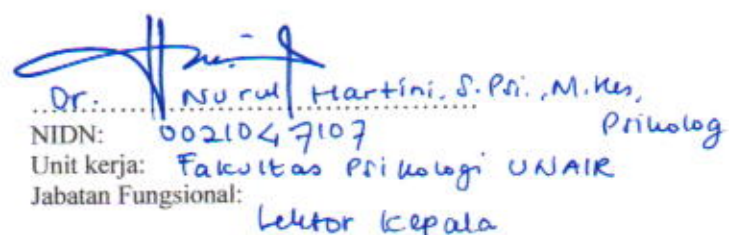 Dr. Nurul Hartini, S.Psi., M.Kes,
Psikolog
NIDN: 0021047107
Unit kerja: Fakultas Psikologi UNAIR
Jabatan Fungsional:
Lektor Kepala